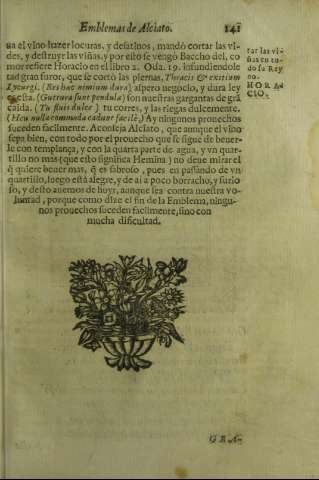 Emblemas de Alciato. 141
ua el vino hazer locuras, y desatinos, mandó cortar las vi-
des, y destruyr las viñas, y por esto se vengò Baccho del, co
mo refiere Horacio en el libro 2. Oda. 19. infundiendole
tad gran furor, que se cortò las piernas, Thracis & exitium
Lycurgi. (Res hæc nimium dura) aspero negocio, y dura ley
es esta. (Guttura sunt pendula) son nuestras gargantas de grã
caida. (Tu fluis dulce) tu corres, y las riegas dulcemente.
(Heu nulla commoda cadunt facilè) Ay ningunos prouechos
suceden facilmente. Aconseja Alciato, que aunque el vino
sepa bien, con todo por el prouecho que se sigue de beuer-
le con templança, y con la quarta parte de agua, y vn quar-
tillo no mas (que esto significa Hemina) no deue mirar el
q̃ quiere beuer mas, q̃ es sabroso, pues en passando de vn
quartillo, luego està alegre, y de ai a poco borracho, y furio
so, y desto auemos de huyr, aunque sea contra nuestra vo-
luntad, porque como dize el fin de la Emblema, ningu-
nos prouechos suceden facilmente, sino con
mucha dificultad.
tar las vi-
ñas en to-
do su Rey
no.
HORA-
CIO.